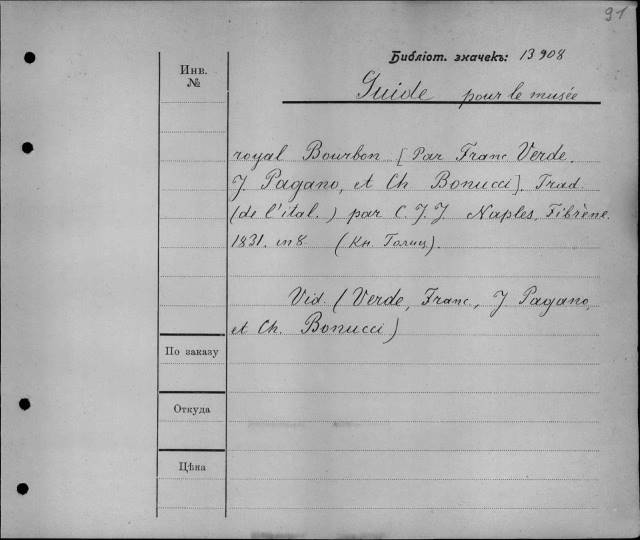 91
Библіот. значекъ: 13908
Инв. №
Guide pour le musée
royal Bourbon [Par Franc Verde,
J Pagano, et Ch Bonucci]. Trad.
(de l'ital.) par C. J. J. Naples, Fibrène.
1831. in 8. (Кн. Голиц).
Vid. (Verde, Franc., J Pagano,
et Ch. Bonucci)
По заказу
Откуда
Цѣна